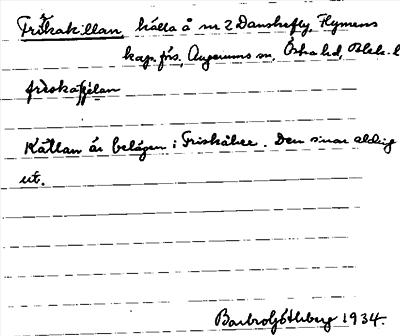 Friskakällan, källa å nr 2 Danskefly, Flymens
kap. förs., Augerums sn, Östra hd, Blek. l.
friskašélan
Källan är belägen i Friskabec. Den sinar aldrig
ut.
Barbro Göthberg 1934.